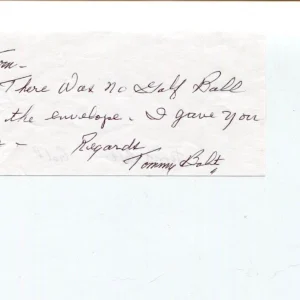 Tom-
There Was no Golf Ball
the envelope. I gave you
-
Regards
Tommy Bolt